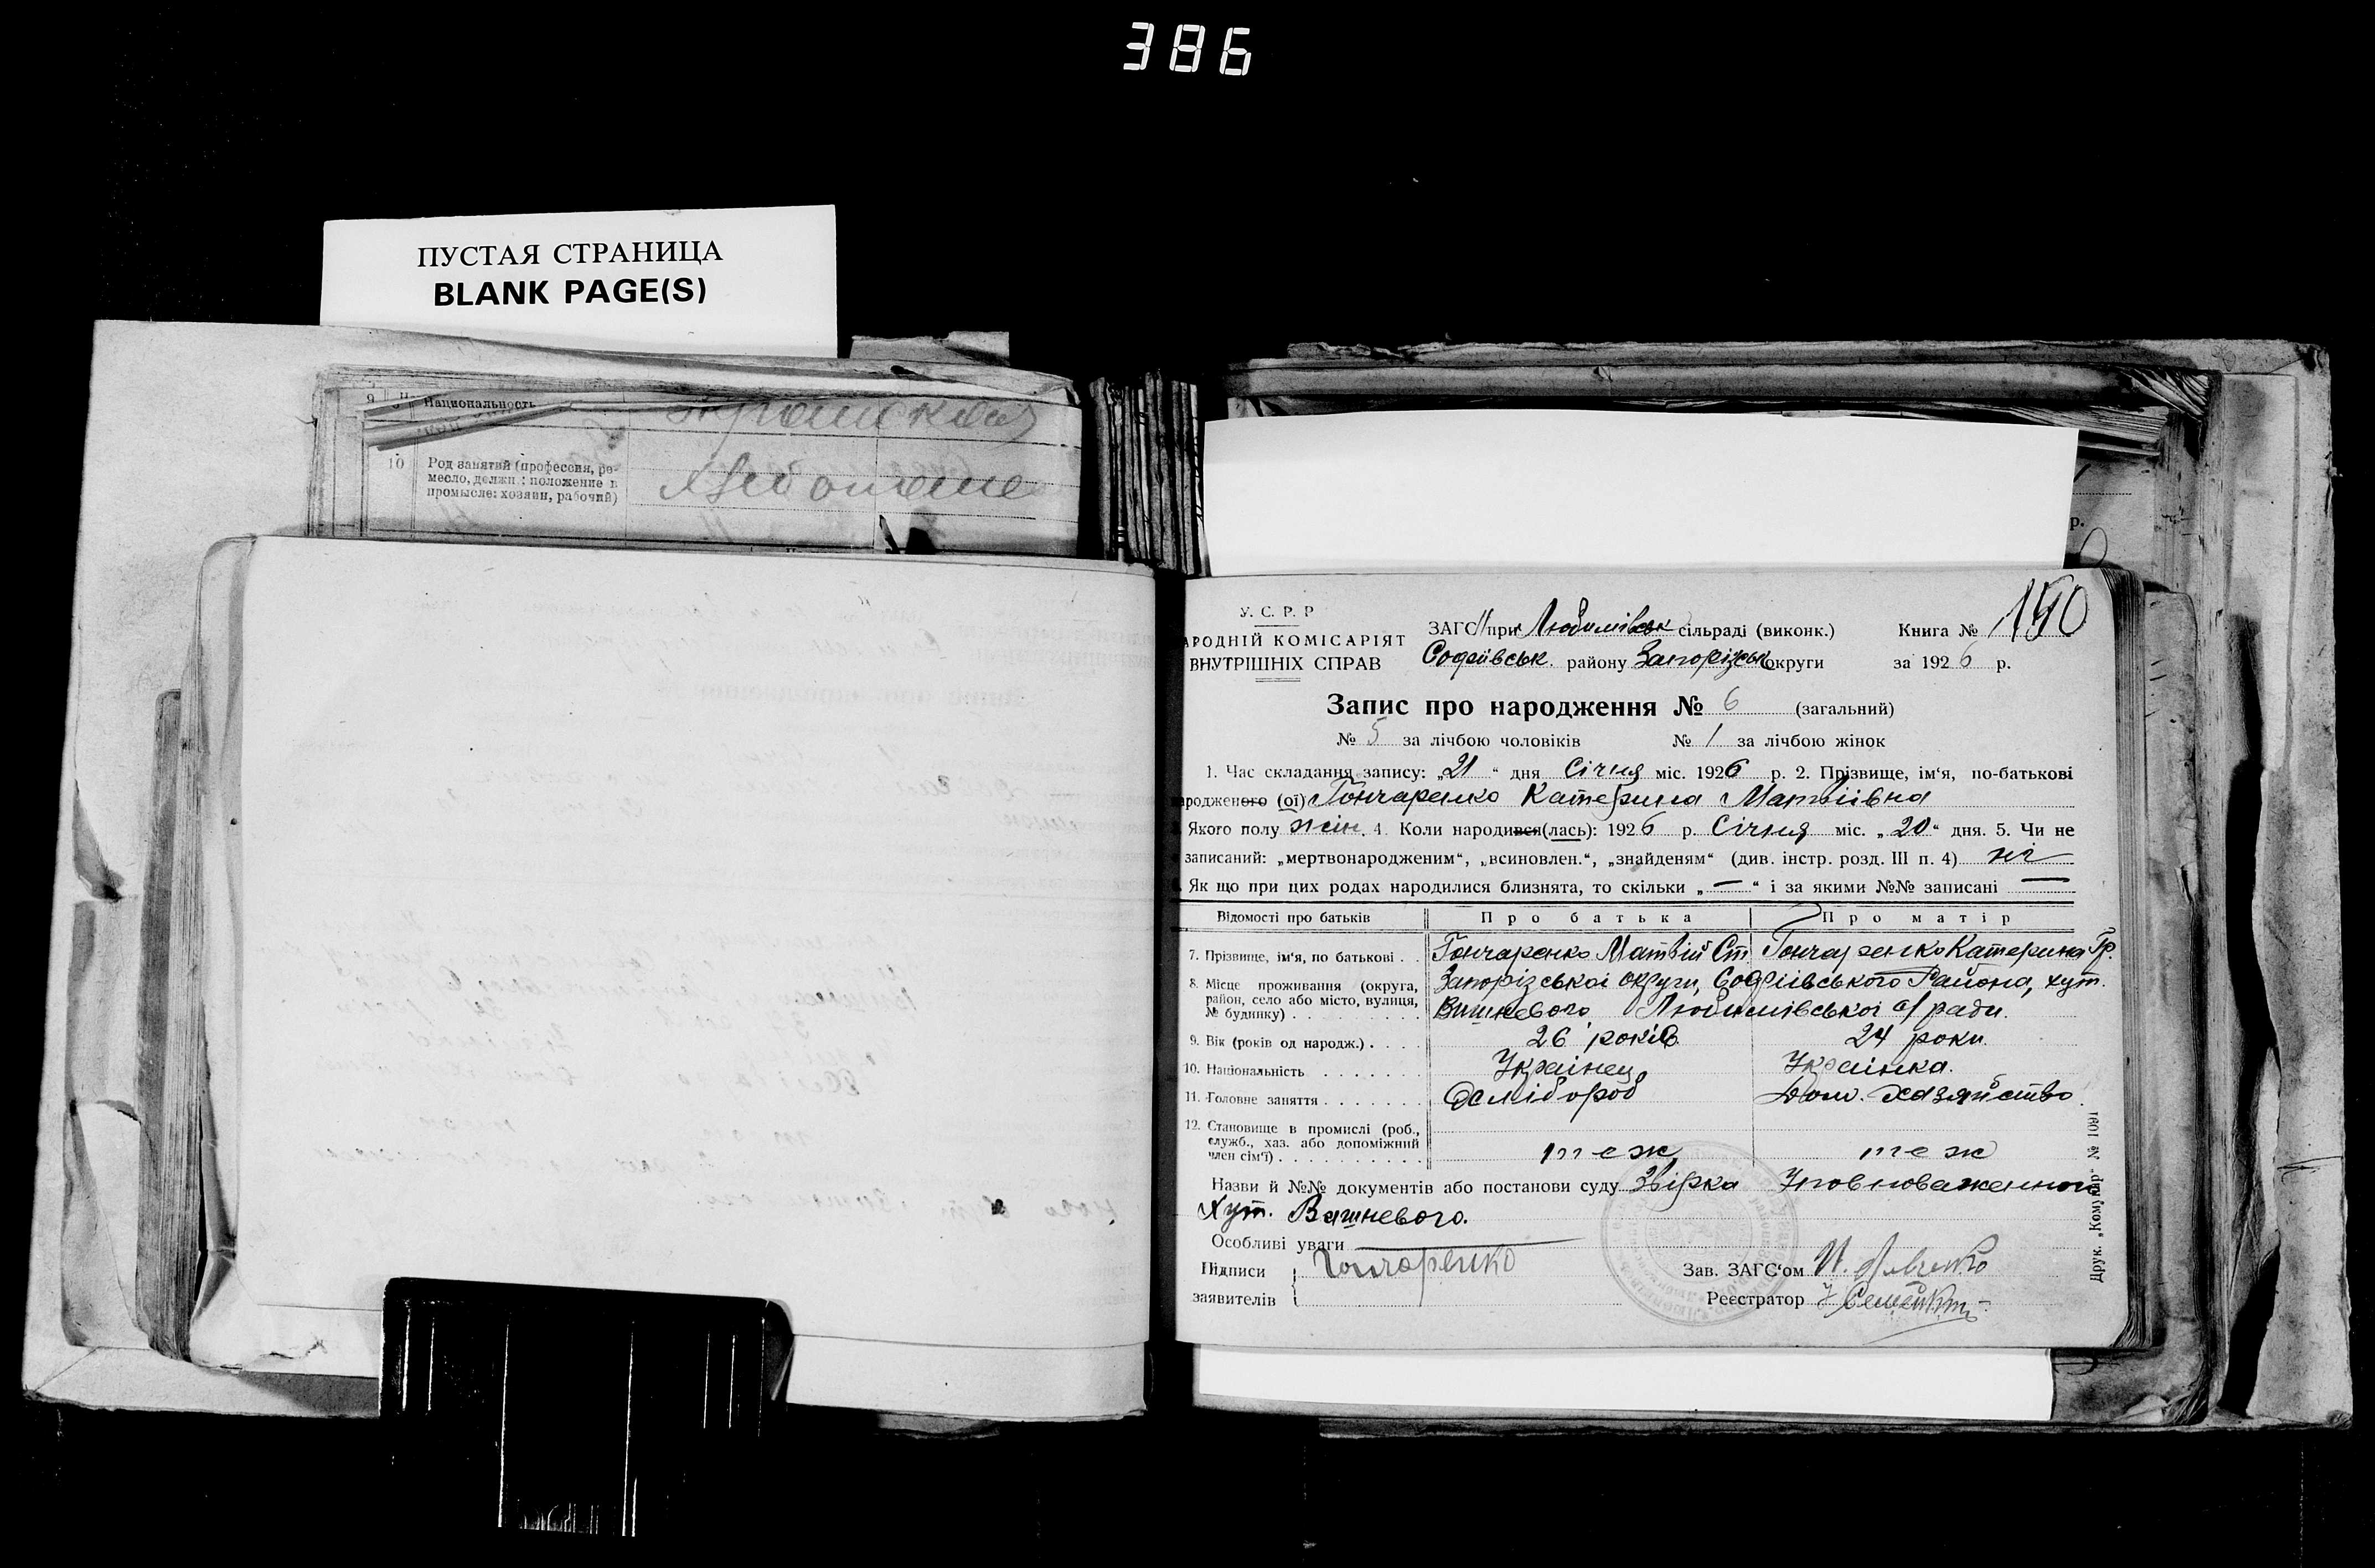 386
ПУСТАЯ СТРАНИЦА
BLANK PAGE(S)
9 Национальность
10 Род занятий (профессия, ре-
месло, должн.: положение в
промысле: хозяин, рабочий)
У. С. Р. Р
АРОДНІЙ КОМІСАРІЯТ
ВНУТРІШНІХ СПРАВ
ЗАГС при Любимівськ сільраді (виконк.)
Софіївськ. району Запорізськ округи
Книга № 190
за 1926 р.
Запис про народження № 6 (загальний)
№ 5 за лічбою чоловіків № 1 за лічбою жінок
1. Час складання запису: „21“ дня Січня міс. 1926 р. 2. Прізвище, ім‘я, по-батькові
ародженого (ої) Гончаренко Катерина Матвіівна
Якого полу жін. 4. Коли народився(лась): 1926 р. Січня міс. „20“ дня. 5. Чи не
записаний: „мертвонародженим“, „всиновлен.“, „знайденям“ (див. інстр. розд. III п. 4) ні
Як що при цих родах народилися близнята, то скільки „—“ і за якими №№ записані —
Відомості про батьків Про батька Про матір
7. Прізвище, ім‘я, по батькові . . Гончаренко Матвій Ст. Гончаренко Катерина Гр.
8. Місце проживання (округа,
район, село або місто, вулиця,
№ будинку) . . . . . . . . Запорізської округи, Софіівського Района, хут.
Вишневого Любимівської с/ради.
9. Вік (років од народж.) . . . . 26 років 24 роки.
10. Національність . . . . . . . Українец Українка.
11. Головне заняття . . . . . . . Хлібороб Дом. хазяйство
12. Становище в промислі (роб.,
служб., хаз. або допоміжний
член сім‘ї) . . . . . . . . . . теж теж
Назви й №№ документів або постанови суду Звірка Уповноваженного
Хут. Вишневого.
Особливі уваги —
Підписи
заявителів
Гончаренко
Зав. ЗАГС‘ом
Реєстратор
Друк. „Комунар“ № 1091